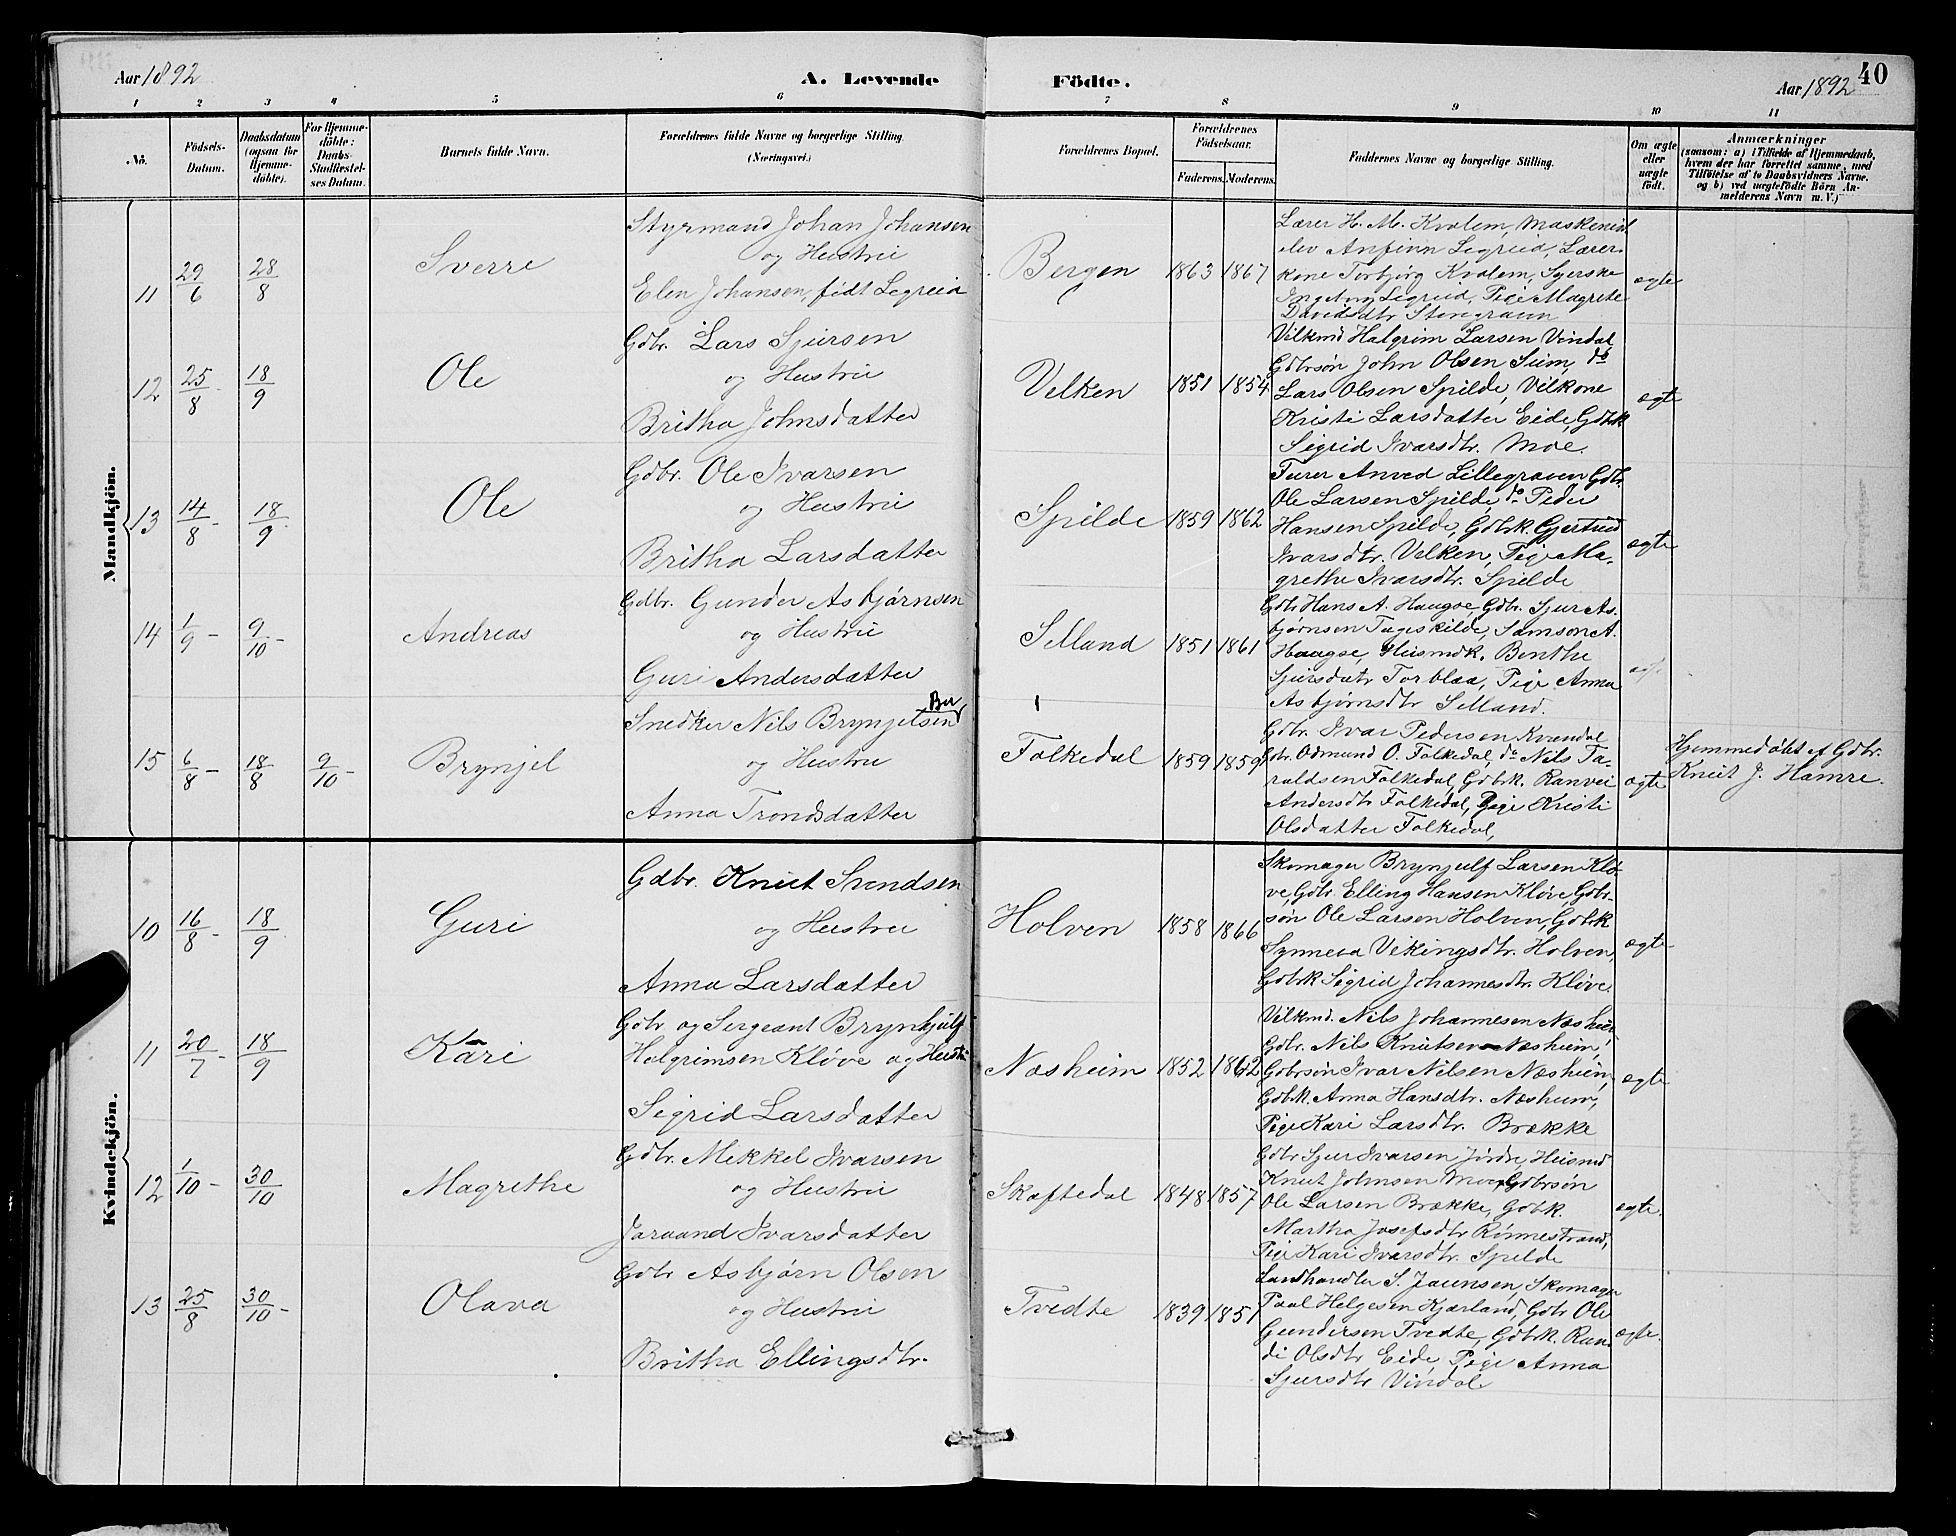 Aar 1892
A. Levende
Födte.
Aar 1892
40
1 2 3 4 5 6 7 8 9 10 11
No.
Födsels-
Datum.
Daabsdatum
(ogsaa for
Hjemme-
döbte).
For Hjemme-
döbte:
Daabs-
Stadfæstel-
ses Datum.
Barnets fulde Navn.
Forældrenes fulde Navne og borgerlige Stilling.
(Næringsvei.)
Forældrenes Bopæl.
Forældrenes
Födselsaar.
Faderens. Moderens.
Faddernes Navne og borgerlige Stilling.
Om ægte
eller
uægte
födt.
Anmærkninger
(saasom: a) i Tilfælde af Hjemmedaab,
hvem der har forrettet samme, med
Tilföielse af to Daabsvidners Navne.
og b) ved uægtefödte Börn An-
melderens Navn m. V.)
Mandkjön.
11 29/6 28/8 Sverre
Styrmand Johan Johansen
og Hustru
Elen Johansen, født Legreid
Bergen 1863 1867
Lærer H. M. Kvalem, Maskenist
elev Anfinn Legreid, Lærer-
kone Torbjørg Kvalem, Syerske
Legreid, Pige Magrete
Davidsdtr Stenegraven
ægte
12 25/8 18/9 Ole
Gdbr. Lars Sjursen
og Hustru
Britha Johnsdatter
Velken 1851 1854
Vilkmd Halgrim Larsen Vindal
Gdbrsøn John Olsen Seim, do
Lars Olsen Spilde, Vilkone
Kristi Larsdatter Eide, Gdbrk
Sigrid Ivarsdtr. Moe.
ægte
13 14/8 18/9 Ole
Gdbr. Ole Ivarsen
og Hustru
Britha Larsdatter
Spilde 1859 1862
Furer Anved Lillegraven Gdbr.
Ole Larsen Spilde, do Peder
Hansen Spilde, Gdbrk. Gjertrud
Ivarsdtr. Velken, Pige Ma-
grethe Ivarsdtr. Spilde
ægte
14 1/9 9/10 Andreas
Gdbr. Gunder Asbjørnsen
og Hustru
Guri Andersdatter
Selland 1851 1861
Gdbr Hans A. Haugse, Gdbr. Sjur As-
bjørnsen Tageskilde, Samson A.
Haugse, Husmdk. Benthe
Sjursdatr Torblaa, Pige Anna
Asbjørnsdtr Selland.
ægte
15 6/8 18/8 9/10 Brynjel
Snedker Nils Brynjelsen
og Hustru
Anna Trondsdatter
Folkedal 1859 1859
Gdbr. Ivar Pedersen Kvandal
Gdbr. Odmund O. Folkedal, do Nils Ta-
raldsen Folkedal, Gdbrk. Ranvei
Andersdtr Folkedal, Pige Kristi
Olsdatter Folkedal,
ægte
Hjemmedøbt af Gdbr.
Knut J. Hamre.
Kvindekjön.
10 16/8 18/9 Guri
Gdbr. Knut Svendsen
og Hustru
Anna Larsdatter
Holven 1858 1866
Skomager Brynjulf Larsen Klø-
ve, Gdbr Elling Hansen Kløve, Gdbr-
søn Ole Larsen Holven, Gdbrk
Synneva Vikingsdtr. Holven,
Gdbrk Sigrid Johannesdtr. Kløve.
ægte
11 20/7 18/9 Kari
Gdbr og Sergeant Brynhjulf
Halgrimsen Kløve og Hustru
Sigrid Larsdatter
Næsheim 1852 1862
Vilkmd. Nils Johannesen Næsheim
Gdbr. Nils Knutsen Næsheim,
Gdbrsøn Ivar Nilsen Næsheim,
Gdbrk. Anna Hansdtr. Næsheim,
Pige Kari Larsdtr. Brække
ægte
12 1/10 30/10 Magrethe
Gdbr. Mikkel Ivarsen
og Hustru
Joraand Ivarsdatter
Skaftedal 1848 1857
Gdbr Sjur Ivarsen Jørdre, Husmd
Knut Johnsen Moe, Gdbrsøn
Ole Larsen Brække, Gdbrk.
Martha Josefsdtr Rønnestrand,
Pige Kari Ivarsdtr. Spilde
ægte.
13 25/8 30/10 Olava
Gdbr Asbjørn Olsen
og Hustru
Britha Ellingsdtr.
Tvedte 1839 1851
Landhandler S. Jaunsen, Skomager
Paal Helgesen Kjærland, Gdbr Ole
Gundersen Tvedte, Gdbrk. Ran-
di Olsdtr Eide, Pige Anna
Sjursdtr Vindal
ægte.